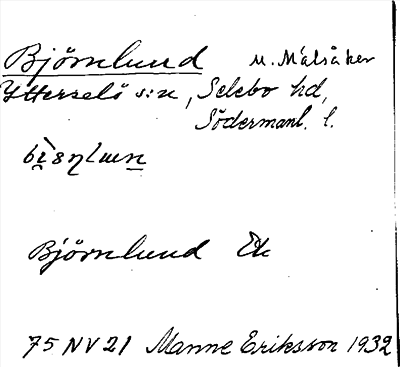 Björnlund u. Målsåker
Ytterselö s:n, Selebo hd,
Södermanl. l.
Björnlund Ek
75 NV 21 Manne Eriksson 1932